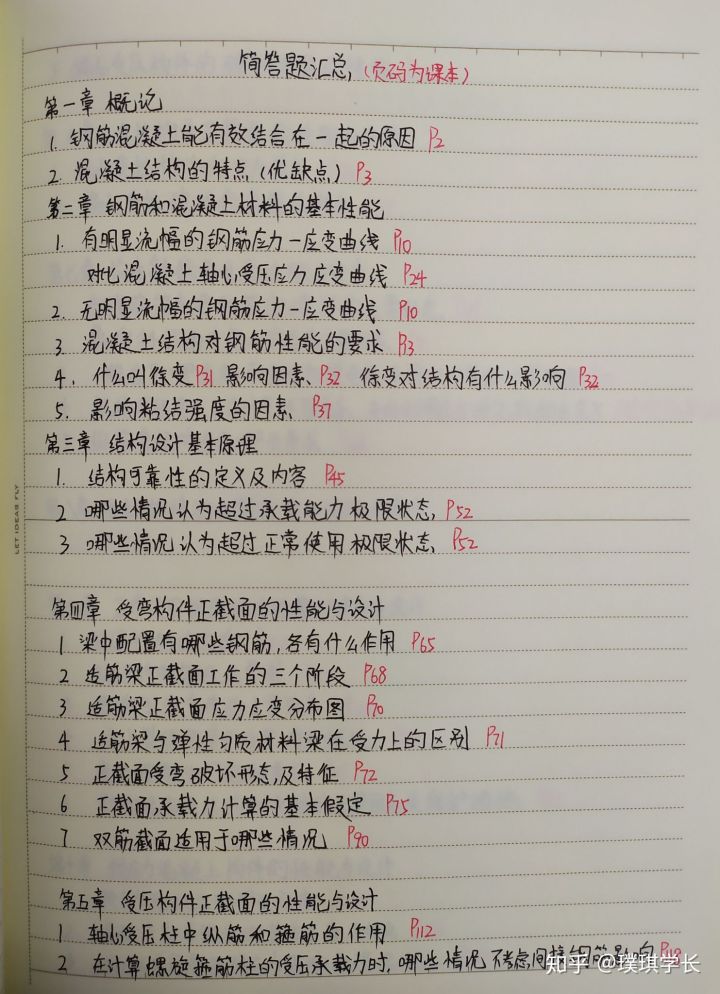 简答题汇总,(页码为课本)
第一章 概论
1. 钢筋混凝土能有效结合在一起的原因 P2
2. 混凝土结构的特点(优缺点) P3
第二章 钢筋和混凝土材料的基本性能
1. 有明显流幅的钢筋应力-应变曲线 P10
对比混凝土轴心受压应力应变曲线 P24
2. 无明显流幅的钢筋应力-应变曲线 P10
3. 混凝土结构对钢筋性能的要求 P13
4. 什么叫徐变 P31 影响因素、P32 徐变对结构有什么影响 P32
5. 影响粘结强度的因素 P37
第三章 结构设计基本原理
1. 结构可靠性的定义及内容 P45
2 哪些情况认为超过承载能力极限状态, P52
3 哪些情况认为超过正常使用极限状态、P52
LET IDEAS FLY
第四章 受弯构件正截面的性能与设计
1 梁中配置有哪些钢筋,各有什么作用 P65
2 适筋梁正截面工作的三个阶段 P68
3 适筋梁正截面应力应变分布图 P70
4 适筋梁与弹性匀质材料梁在受力上的区别 P71
5 正截面受弯破坏形态,及特征 P72
6 正截面承载力计算的基本假定 P75
7 双筋截面适用于哪些情况 P90
第五章 受压构件正截面的性能与设计
1 轴心受压柱中纵筋和箍筋的作用 P112
2 在计算螺旋箍筋柱的受压承载力时,哪些情况不考虑间接钢筋影响
知乎 @璞琪学长